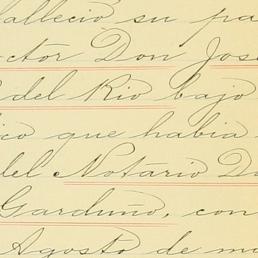 falleció su pa
ctor Don Jos
del Rio bajo
ico que habia
del Notario D
Garduño, con
Agosto de m